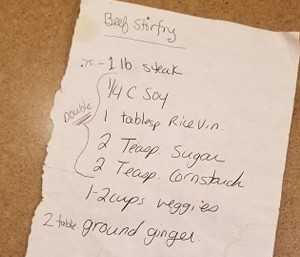 Beef Stirfry
.75 - 1 lb. steak
1/4 C Soy
Double
1 tablesp. Rice Vin.
2 Teasp. Sugar
2 Teasp. Cornstarch
1-2 cups veggies
2 table. ground ginger.